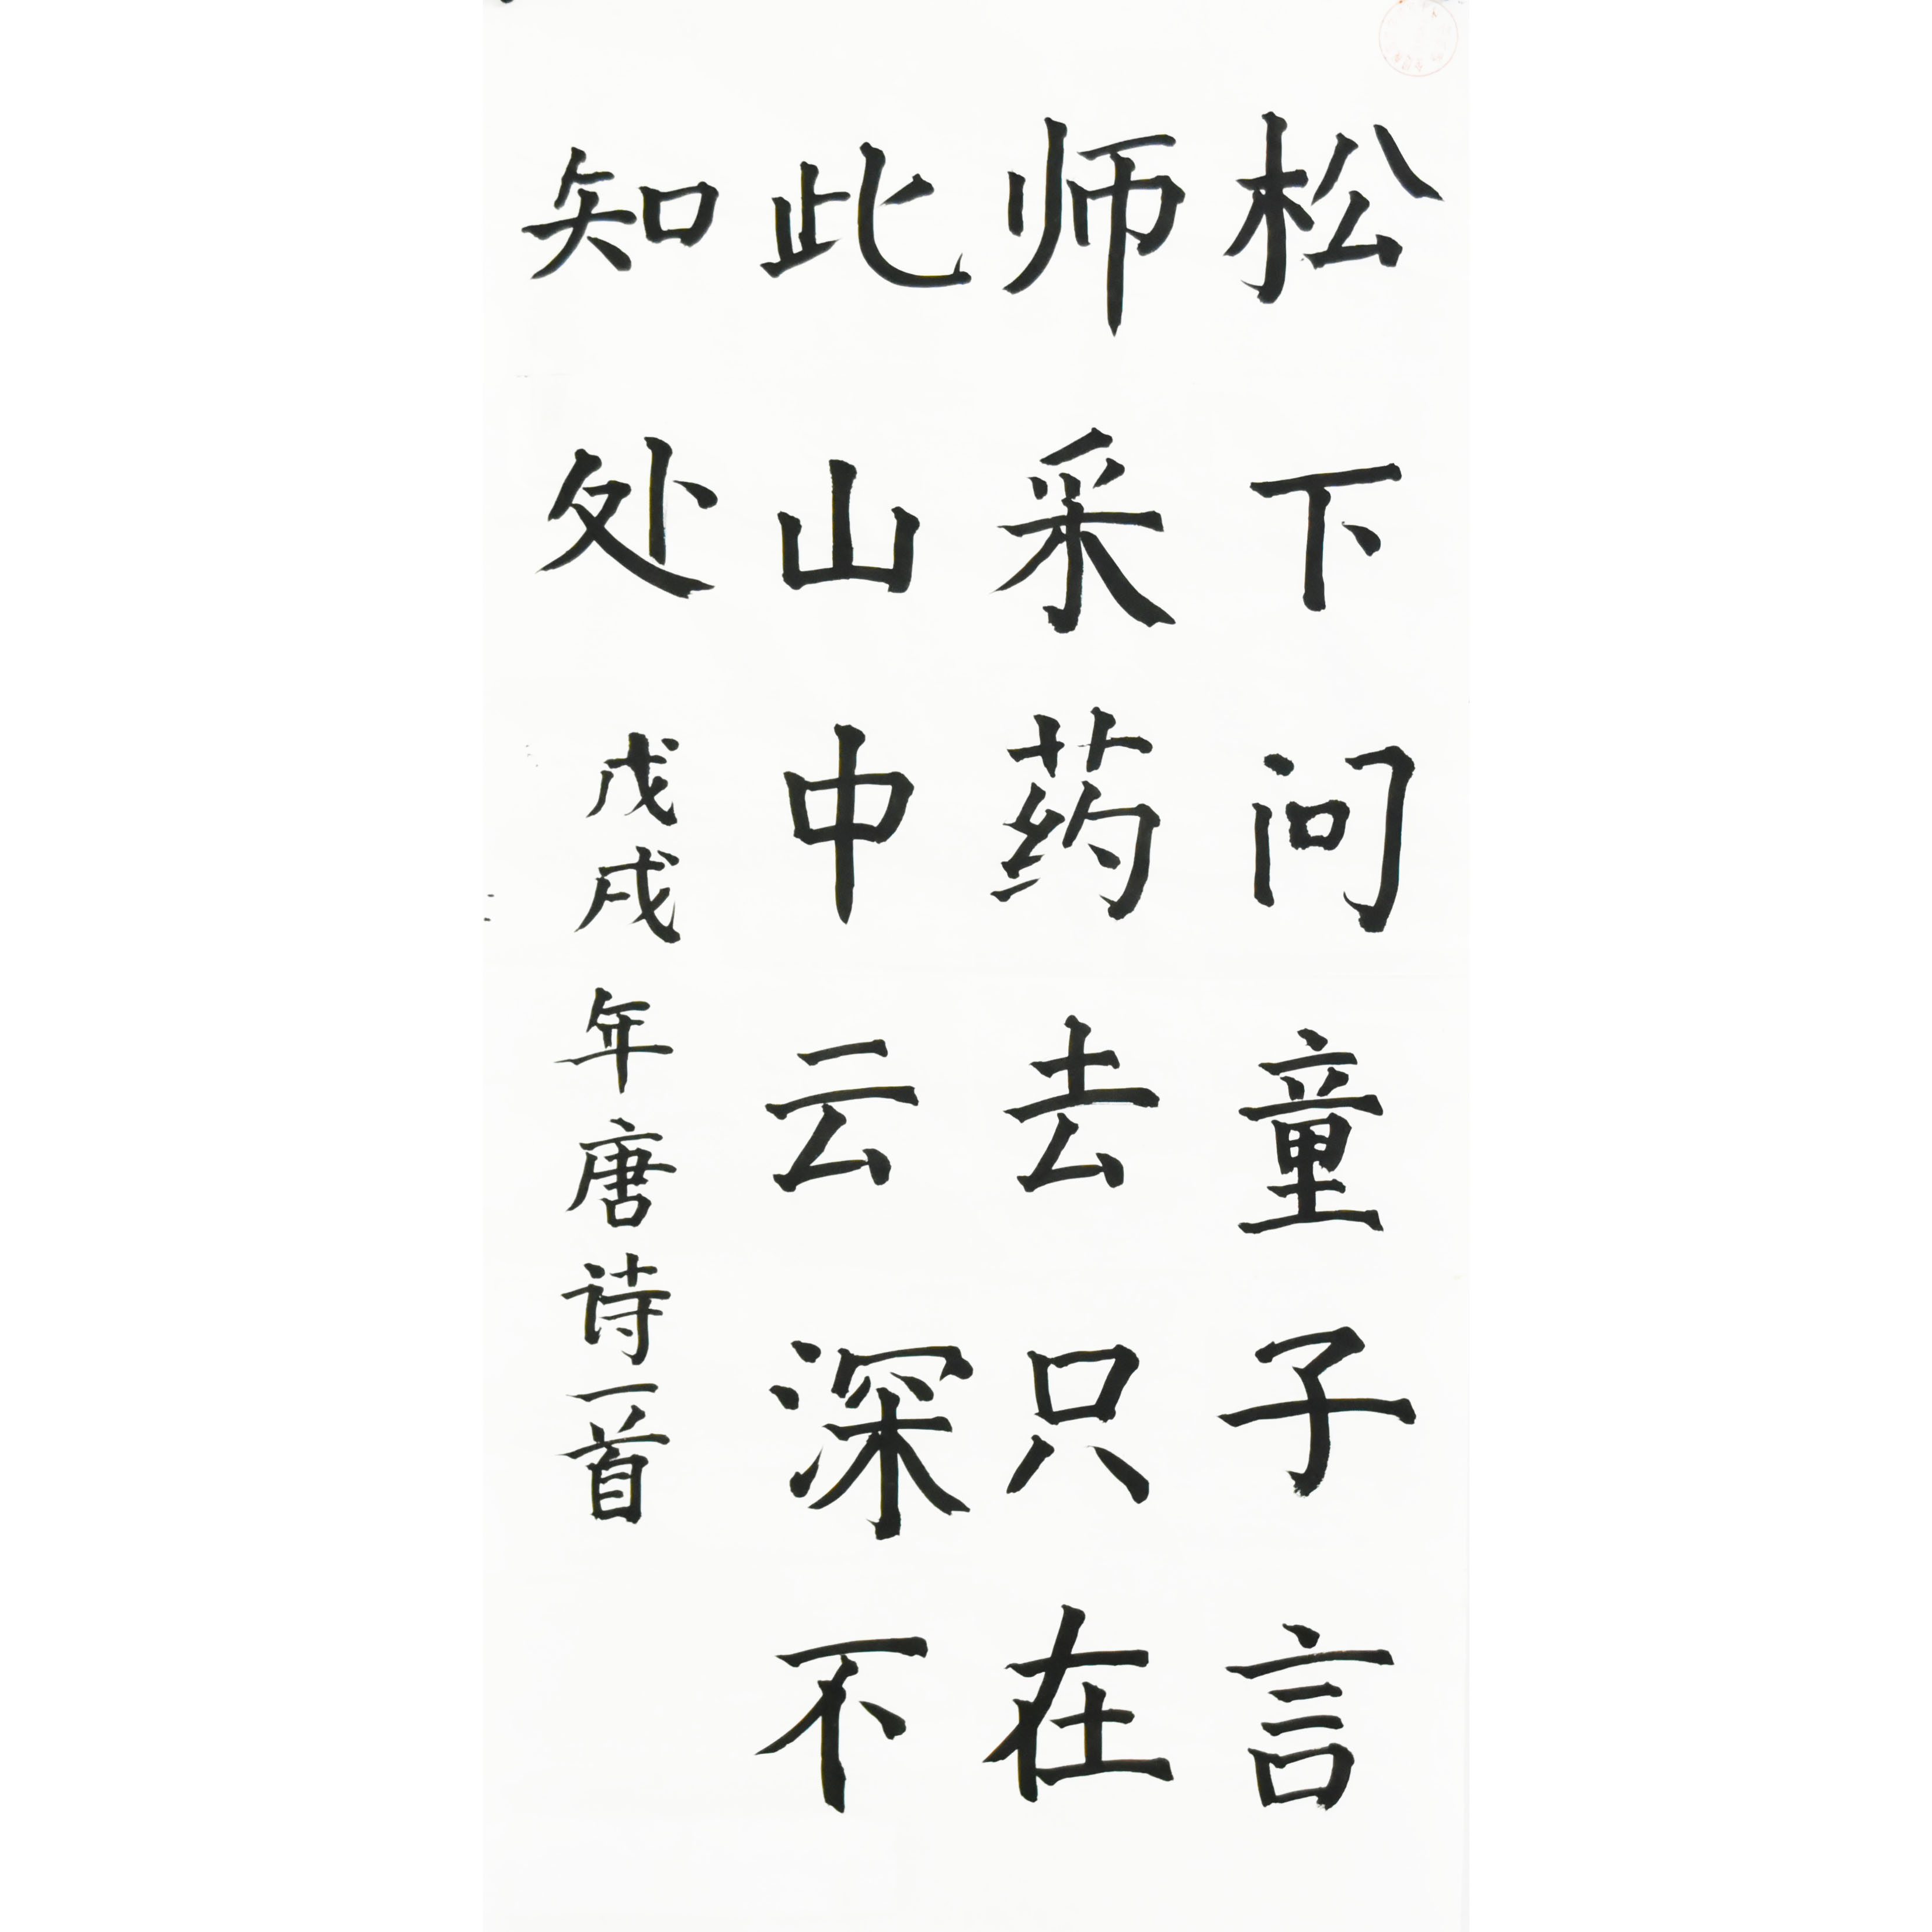 松下问童子言
师采药去只在
此山中云深不
知处 戊戌年唐诗一首